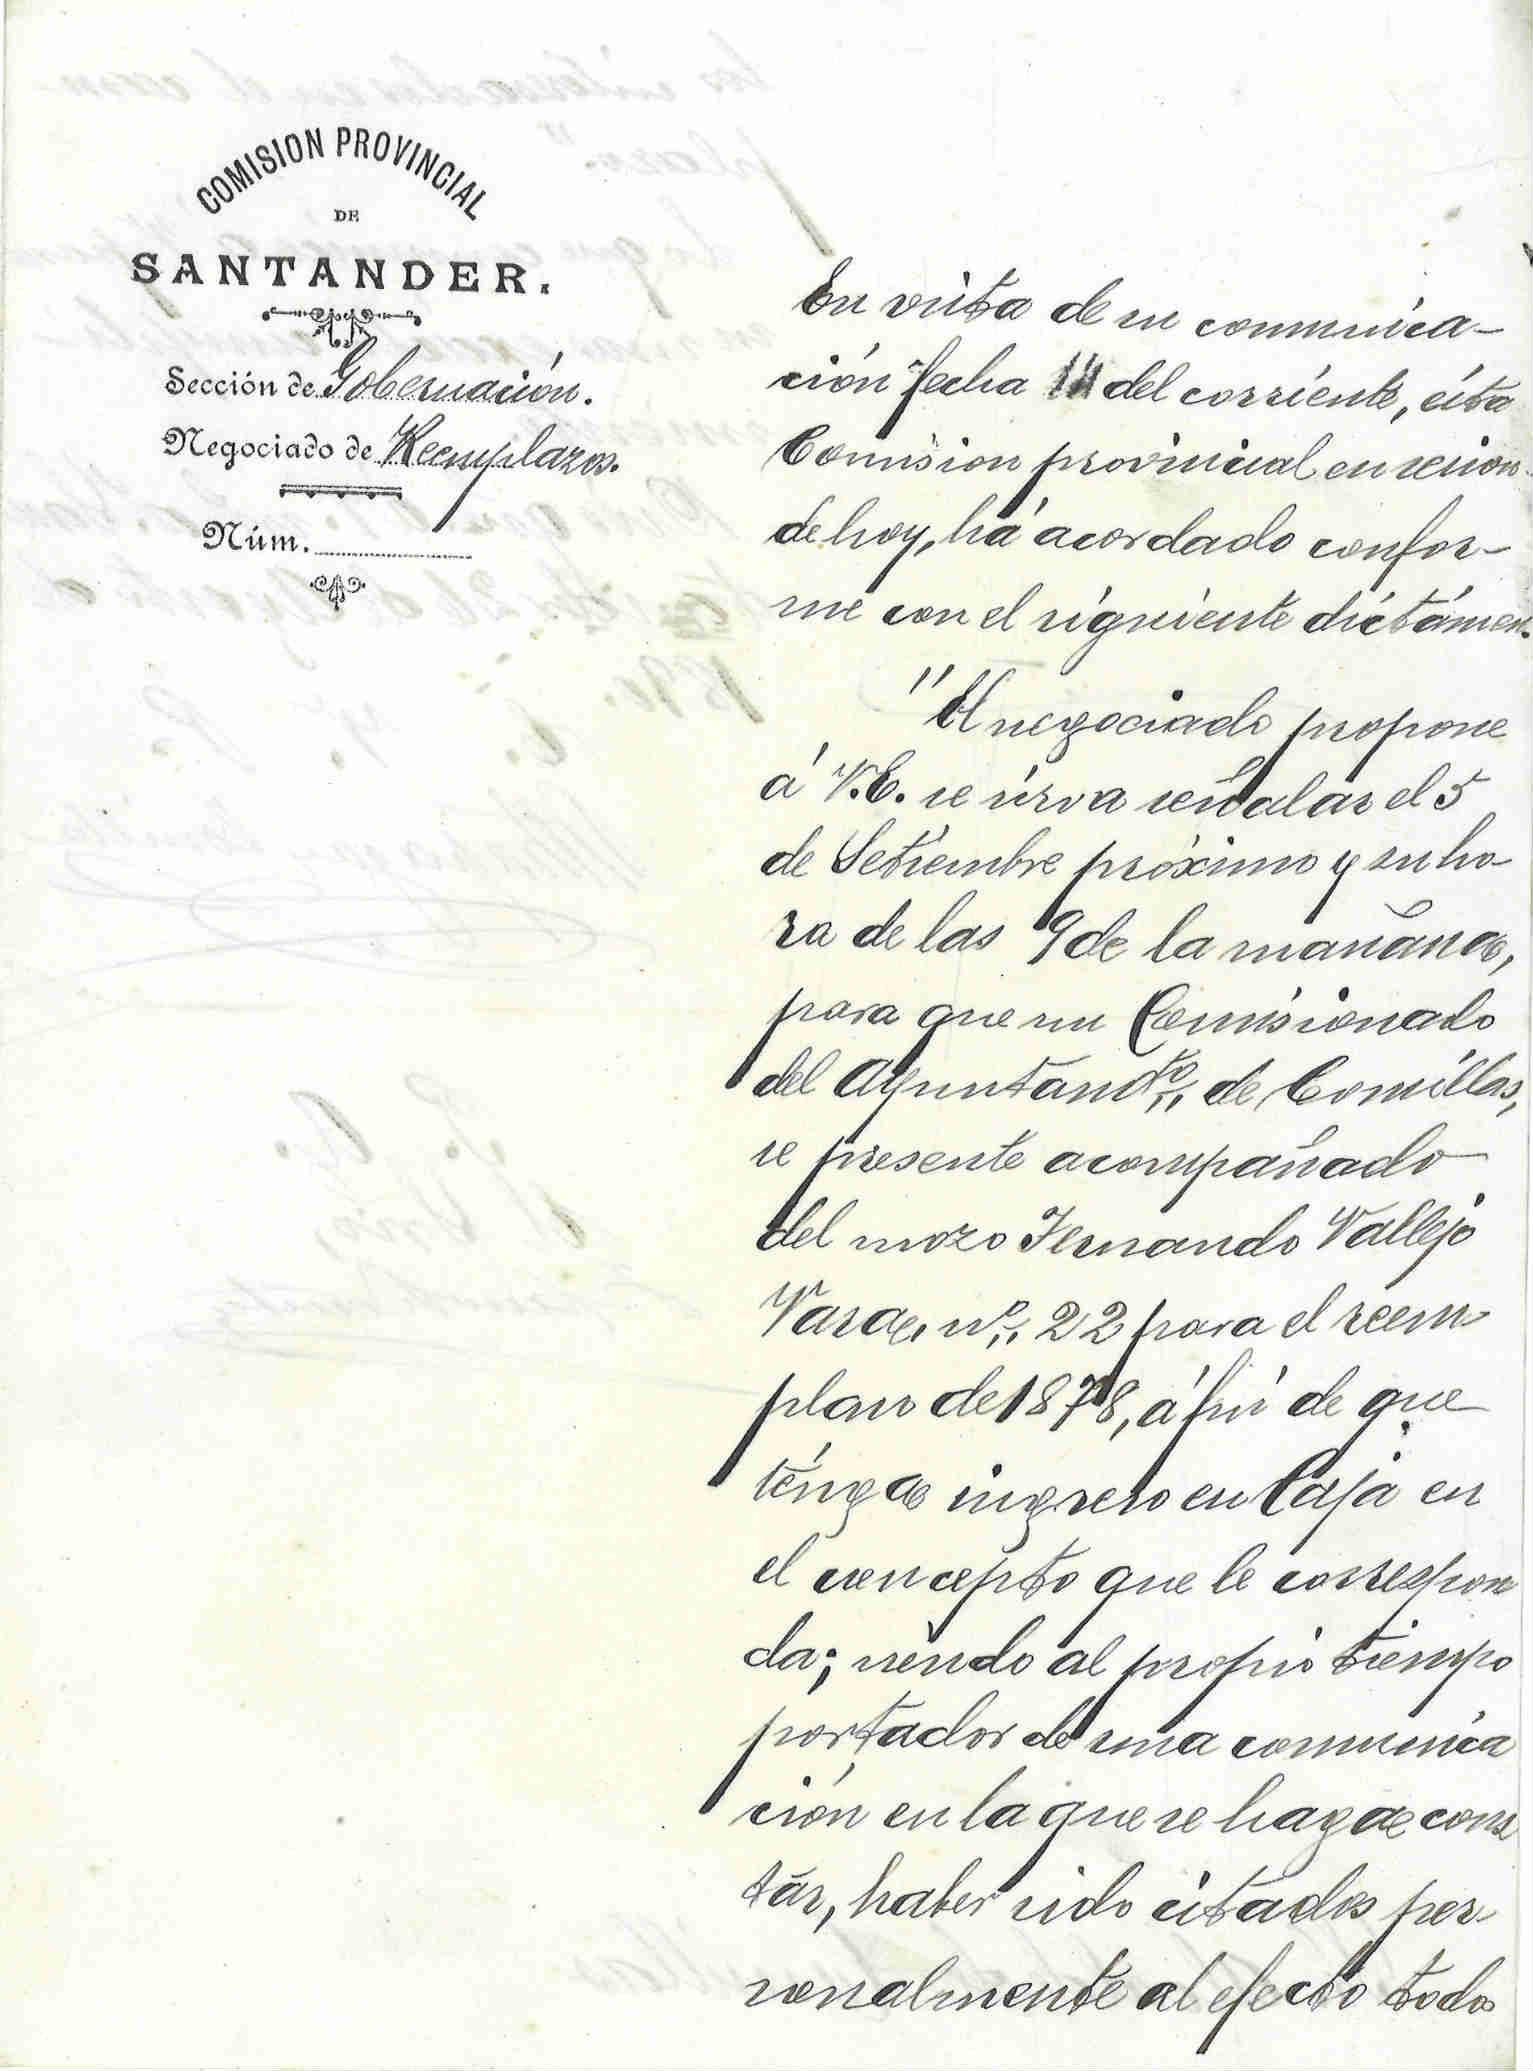 COMISION PROVINCIAL
DE
SANTANDER.
Sección de Gobernación.
Negociado de Reemplazos.
Núm.
En vista de su comunica-
ción fecha 14 del corriente, ésta
Comision provincial en sesion
de hoy, há acordado confor-
me con el siguiente dictámen.
"El negociado propone
á V.E. se sirva señalar el 5
de Setiembre próximo y su ho-
ra de las 9 de la mañana,
para que un Comisionado
del Ayuntamto,, de Comillas,
se presente acompañado
del mozo Fernando Vallejo
Vara, nº,, 22 para el reem
plazo de 1878, á fin de que
ténga ingreso en Caja en
el concepto que le correspon
da; siendo al propio tiempo
portador de una comunica
ción en la que se haga cons
tár, haber sido citados per-
sonalmente al efecto todos